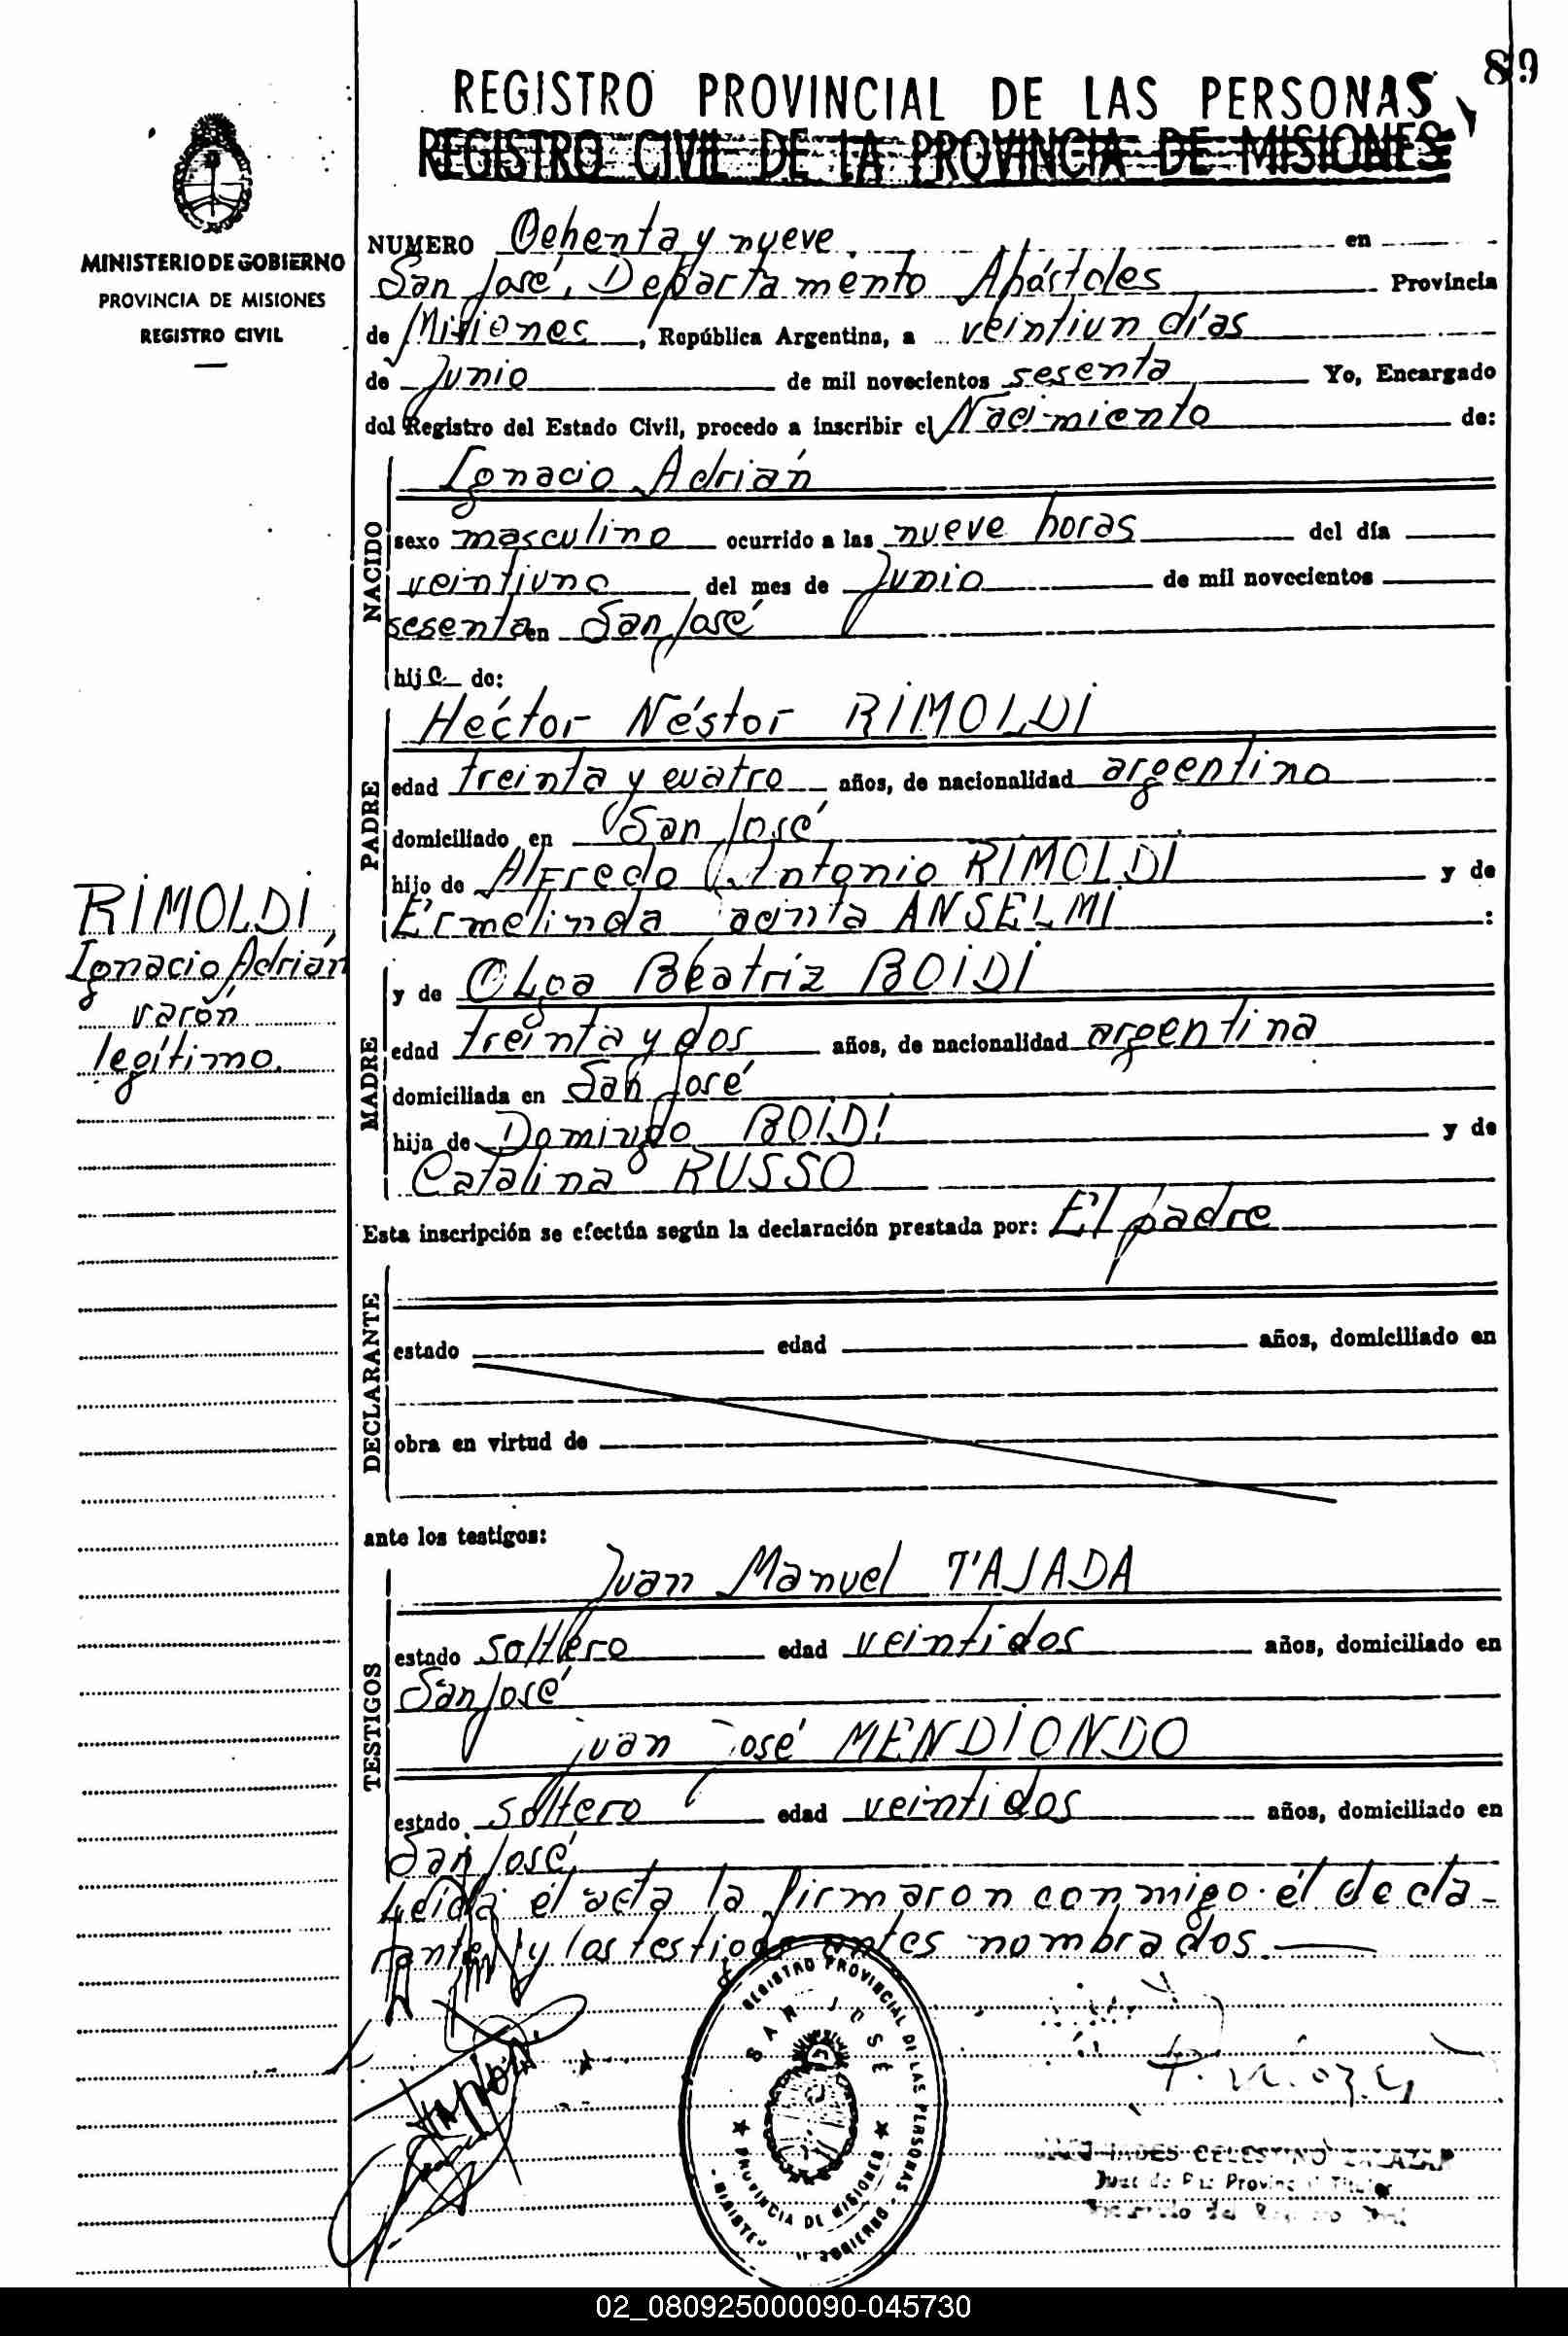 89
REGISTRO PROVINCIAL DE LAS PERSONAS
REGISTRO CIVIL DE LA PROVINCIA DE MISIONES
MINISTERIO DE GOBIERNO
PROVINCIA DE MISIONES
REGISTRO CIVIL
NUMERO Ochenta y nueve en
San José, Departamento Apóstoles Provincia
de Misiones, República Argentina, a veintiun días
de Junio de mil novecientos sesenta Yo, Encargado
del Registro del Estado Civil, procedo a inscribir el Nacimiento de:
NACIDO
Ignacio Adrián
sexo masculino ocurrido a las nueve horas del día
veintiuno del mes de Junio de mil novecientos
sesenta en San José
hijo de:
PADRE
Héctor Néstor RIMOLDI
edad treinta y cuatro años, de nacionalidad argentino
domiciliado en San José
hijo de Alfredo Antonio RIMOLDI y de
Ermelinda Jacinta ANSELMI :
MADRE
y de Olga Beatriz BOIDI
edad treinta y dos años, de nacionalidad argentina
domiciliada en San José
hija de Domingo BOIDI y de
Catalina RUSSO
RIMOLDI,
Ignacio Adrián
varón
legítimo.
Esta inscripción se efectúa según la declaración prestada por: El padre
DECLARANTE
estado edad años, domiciliado en
obra en virtud de
ante los testigos:
TESTIGOS
Juan Manuel TAJADA
estado soltero edad veintidos años, domiciliado en
San José
Juan José MENDIONDO
estado soltero edad veintidos años, domiciliado en
San José.
Leida el acta la firmaron conmigo el decla-
rante y los testigos antes nombrados.
REGISTRO PROVINCIAL DE LAS PERSONAS
SAN JOSE
PROVINCIA DE MISIONES
GOBIERNO
CELESTINO SALAZAR
Juez de Paz Provincial Titular
02_080925000090-045730